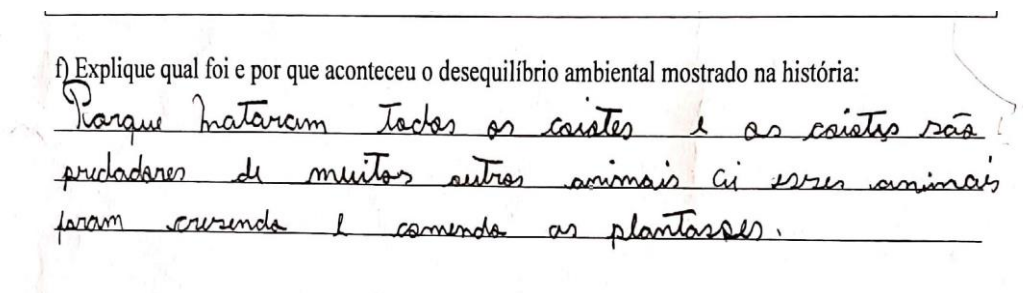 f) Explique qual foi e por que aconteceu o desequilíbrio ambiental mostrado na história:
Porque mataram todos os coiotes e os coiotes são
predadores de muitos outros animais ai esses animais
foram cresendo e comendo as plantasoes.